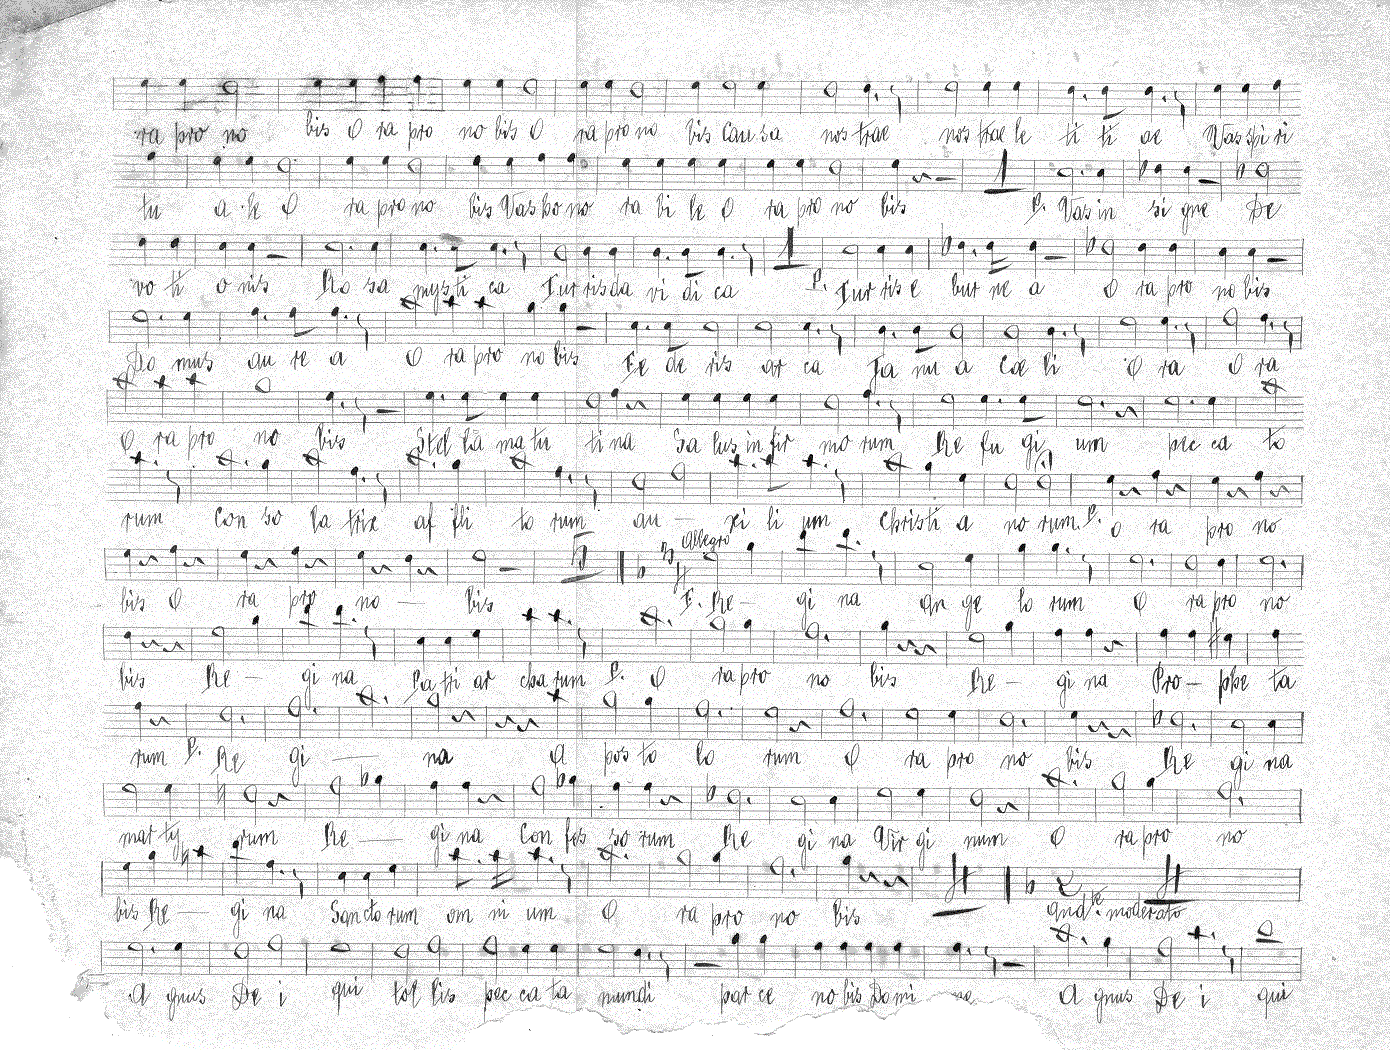 ra pro no bis O ra pro no bis O ra pro no bis Cau sa nos trae nos trae le ti ti ae Vas spi ri
tu a le O ra pro no bis Vas ho no ra bi le O ra pro no bis P. Vas in si gne De
vo ti o nis Ro sa mys ti ca Tur ris da vi di ca P. Tur ris e bur ne a O ra pro no bis
Do mus au re a O ra pro no bis Fe de ris ar ca Ja nu a Coe li O ra O ra
O ra pro no bis Stel la ma tu ti na Sa lus in fir mo rum Re fu gi um pec ca to
rum Con so la trix af fli to rum au — xi li um Christi a no rum. P. O ra pro no
Allegro
bis O ra pro no — bis F. Re — gi na An ge lo rum O ra pro no
bis Re — gi na Pa tri ar cha rum P. O ra pro no bis Re — gi na Pro — phe ta
rum P. Re gi — na A pos to lo rum O ra pro no bis Re gi na
mar ty rum Re — gi na Con fes so rum Re gi na Vir gi num O ra pro no
bis Re — gi na Sancto rum om ni um O ra pro no bis And.te moderato
A gnus De i qui tol lis pec ca ta mundi par ce no bis Do mi A gnus De i qui